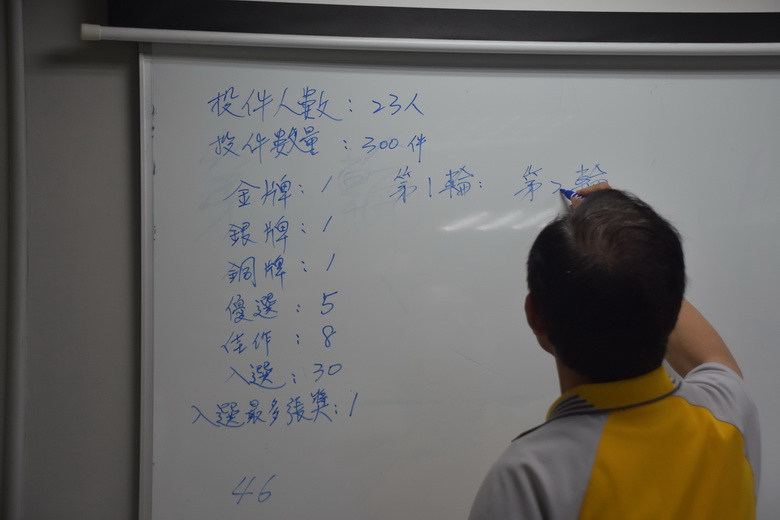 投件人數：23人
投件數量：300件
金牌：1 第1輪： 第2輪
銀牌：1
銅牌：1
優選：5
佳作：8
入選：30
入選最多張獎：1
46